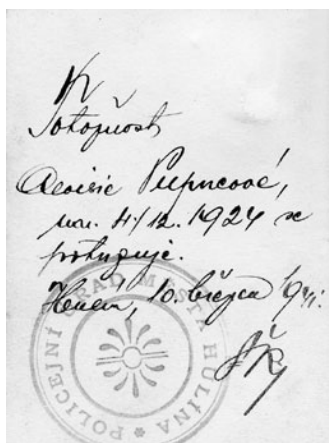 Totožnost
Aloisie
nar. 4/12. 1924 se
potvrzuje.
Hulín, 10. března 1941.
POLICEJNÍ ÚŘAD MĚSTA HULÍNA